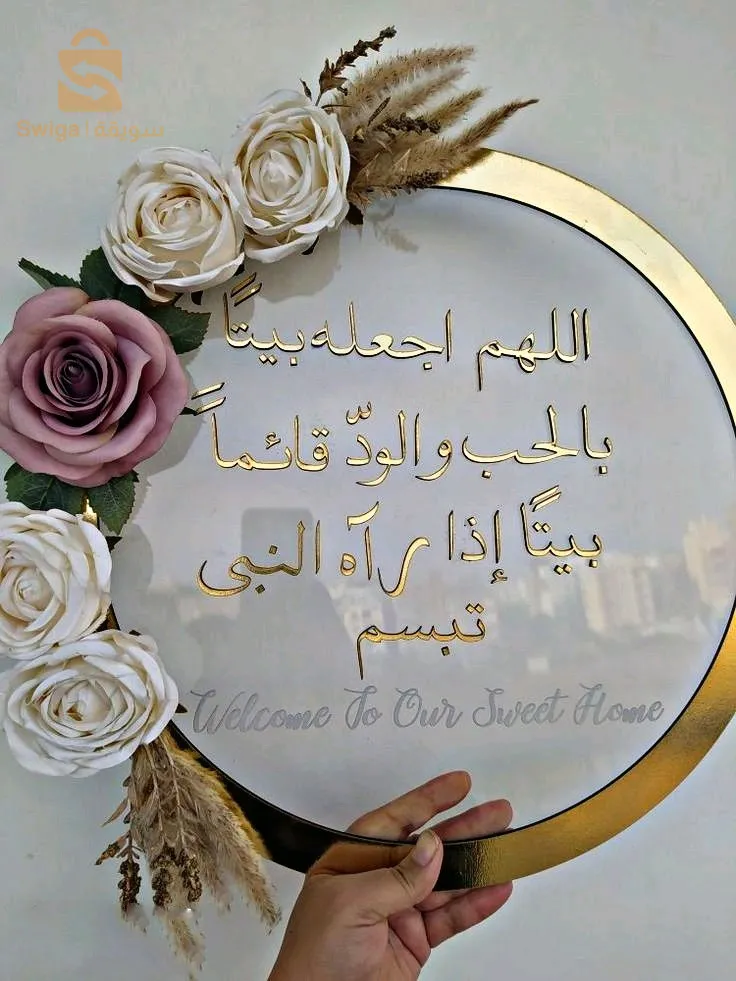 Swiga | سويقة
اللهم اجعله بيتًا
بالحب والودّ قائماً
بيتًا إذا رآه النبي
تبسم
Welcome To Our Sweet Home